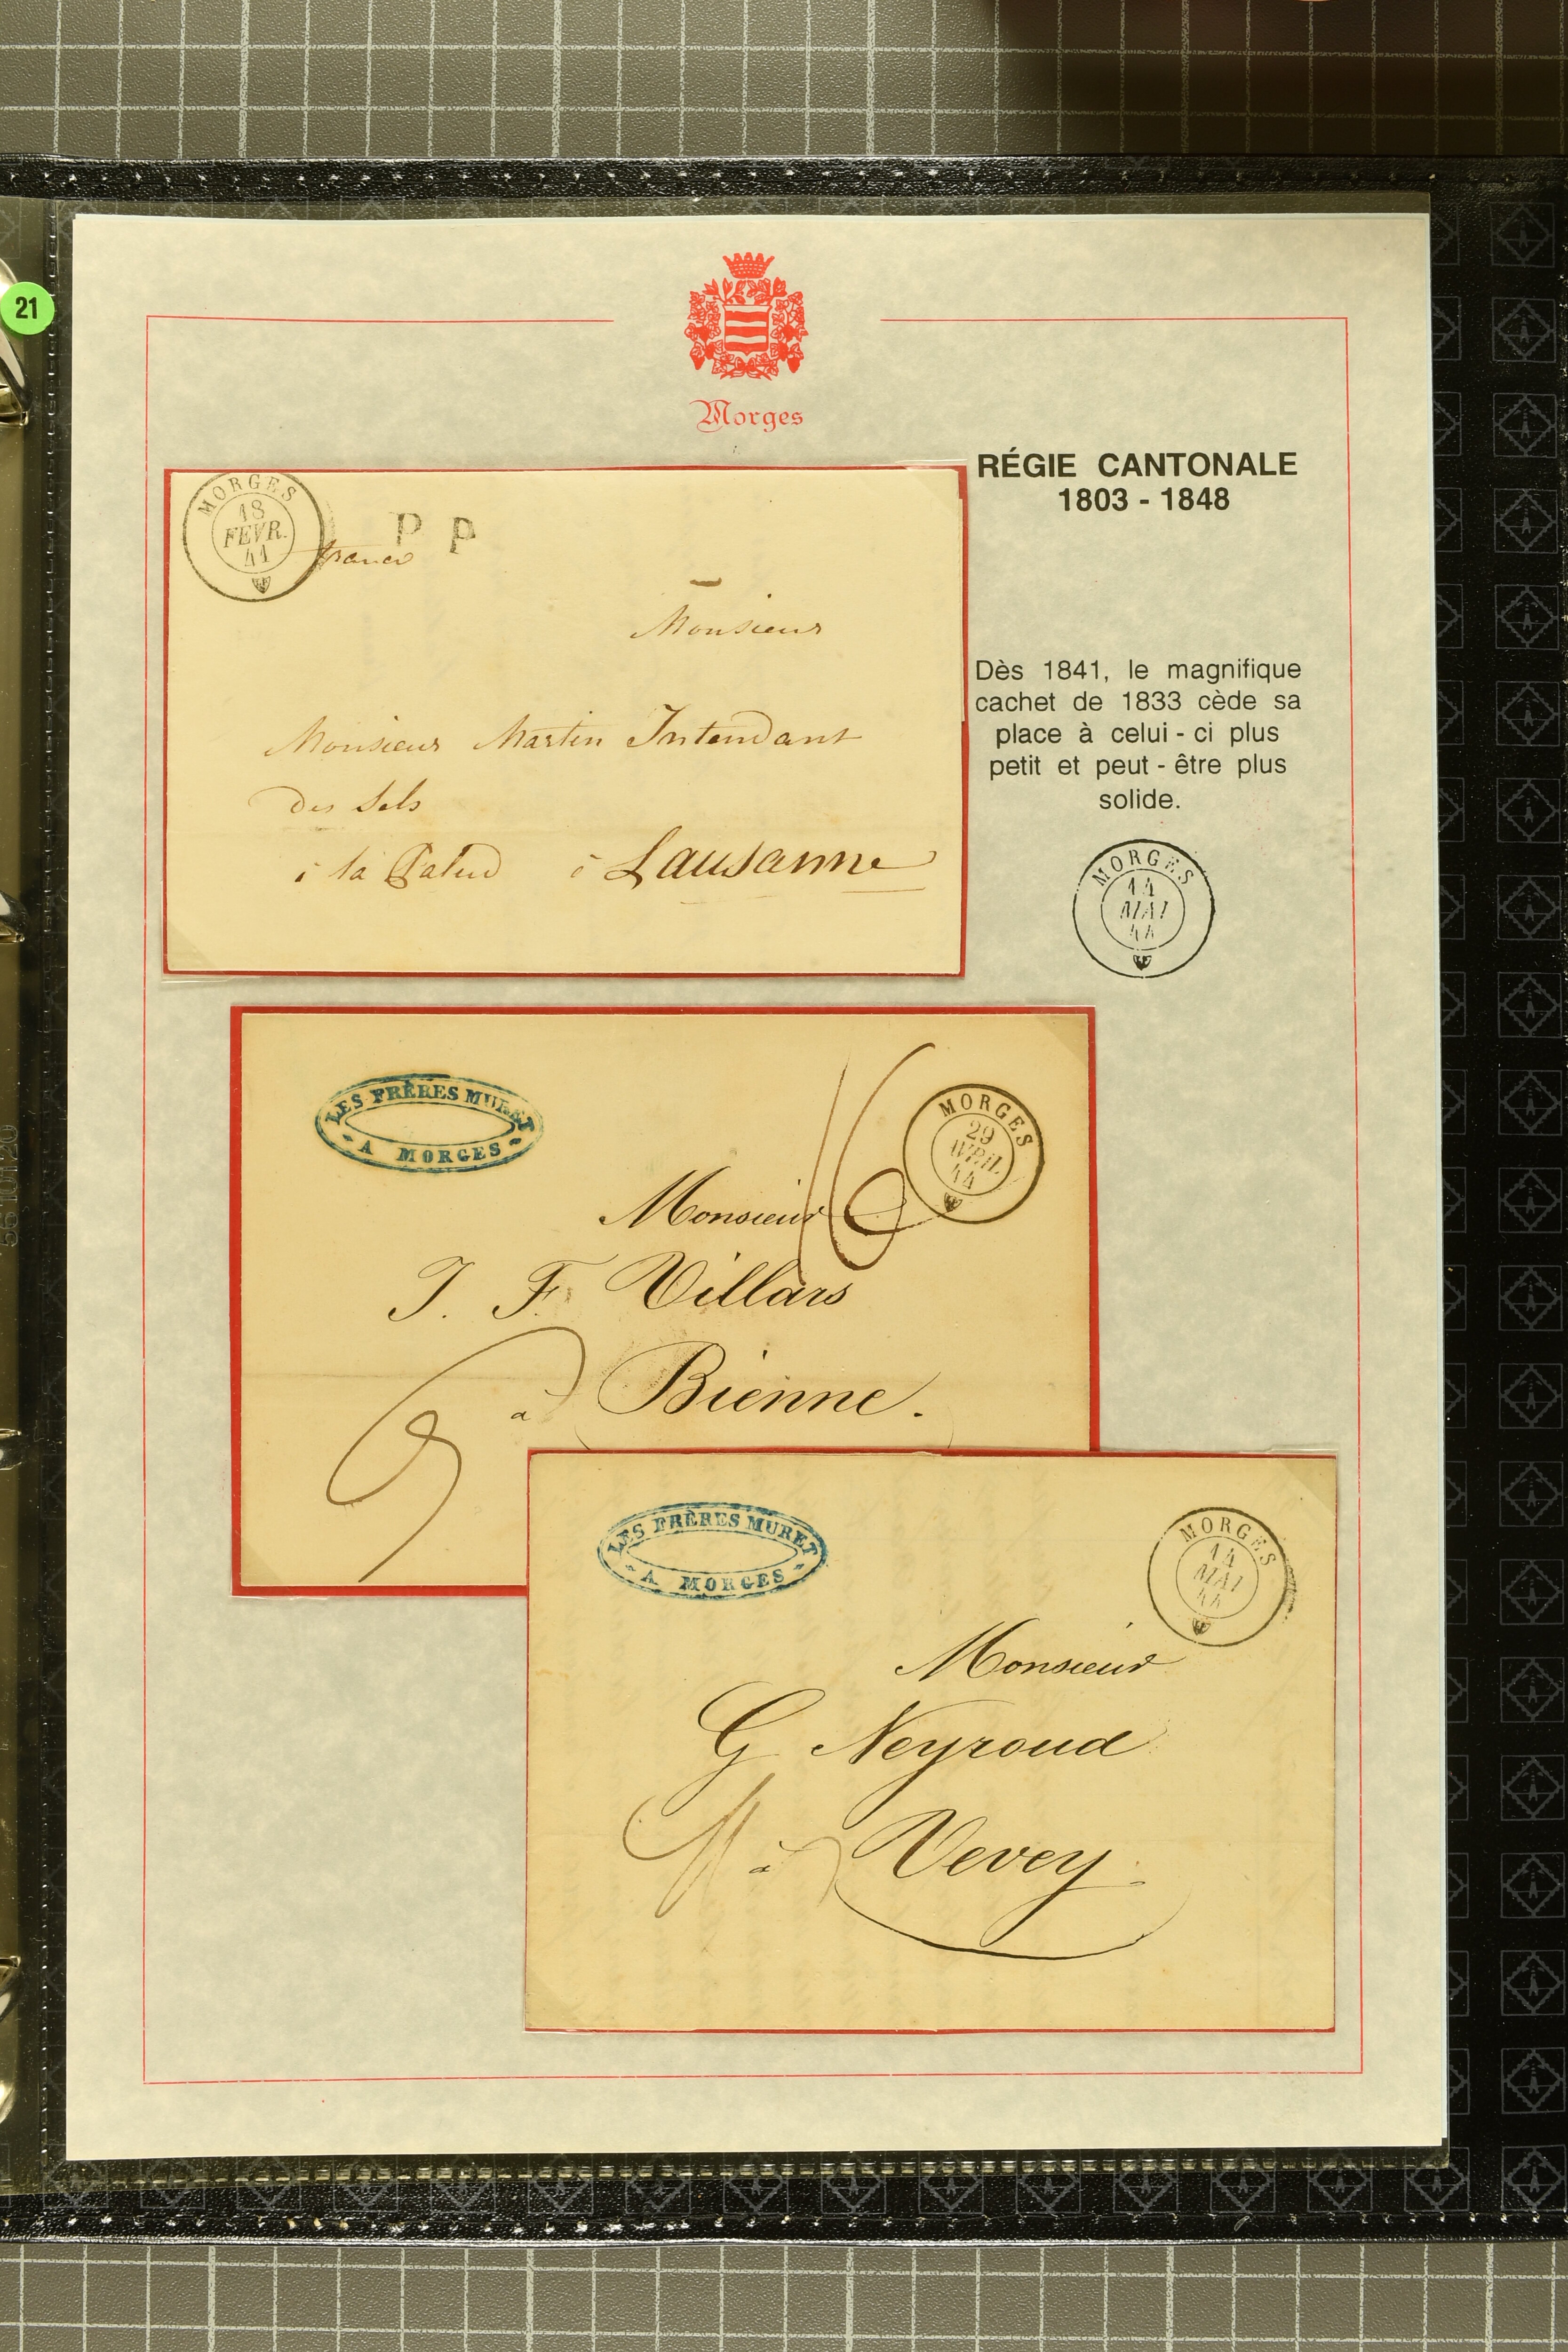 21
Morges
RÉGIE CANTONALE
1803 - 1848
MORGES
18
FEVR.
41
franco
P P
Monsieur
Monsieur Martin Intendant
des Sels
à la Palud à Lausanne
Dès 1841, le magnifique
cachet de 1833 cède sa
place à celui - ci plus
petit et peut - être plus
solide.
MORGES
14
MAI
44
LES FRÈRES MURET
A MORGES
16
MORGES
29
AVRIL
44
Monsieur
J. F. Villars
à Bienne.
LES FRÈRES MURET
A MORGES
MORGES
14
MAI
44
Monsieur
G Neyroud
à Vevey.